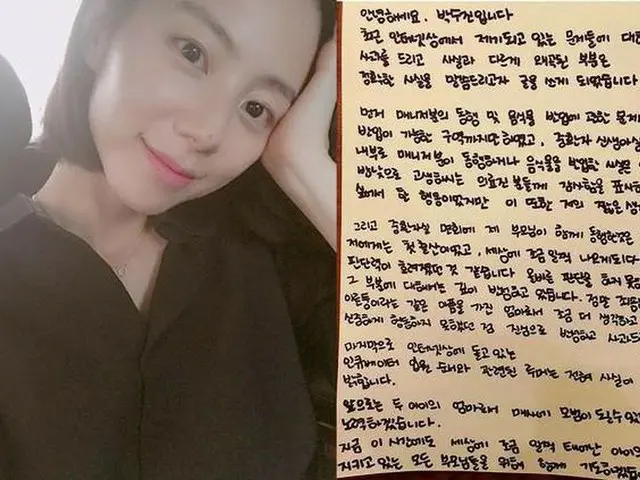 안녕하세요. 박수진입니다
최근 인터넷상에서 제기되고 있는 문제들에 대한
사과를 드리고 사실과 다르게 왜곡된 부분은
정확한 사실을 말씀드리고자 글을 쓰게 되었습니다
먼저 매니저분의 동행 및 음식물 반입에 관한 문제
반입이 가능한 구역까지만 하였고, 중환자 신생아실
내부로 매니저분이 동행하거나 음식물을 반입한 사실은
밤낮으로 고생하시는 의료진 분들께 감사함을 표시
싶어서 한 행동이었지만 이 또한 저의 짧은
그리고 중환자실 면회에 제 부모님이 함께 동행한것은
저에게는 첫 출산이었고, 세상에 조금 일찍 나오게되다
판단력이 흐려졌던 것 같습니다 올바른 판단을 하지
그 부분에 대해서는 깊이 반성하고 있습니다. 정말
이른둥이라는 같은 아픔을 가진 엄마로서 조금 더 생각하고
신중하게 행동하지 못했던 점 진심으로 반성하고 사과드
마지막으로 인터넷상에 돌고 있는
인큐베이터 입원 순서와 관련된 루머는 전혀 사실이
밝힙니다.
앞으로는 두 아이의 엄마로써 매사에 모범이 될수있
노력하겠습니다.
지금 이 시간에도 세상에 조금 일찍 태어난 아이
지키고 있는 모든 부모님들을 위하여 함께 기도하겠